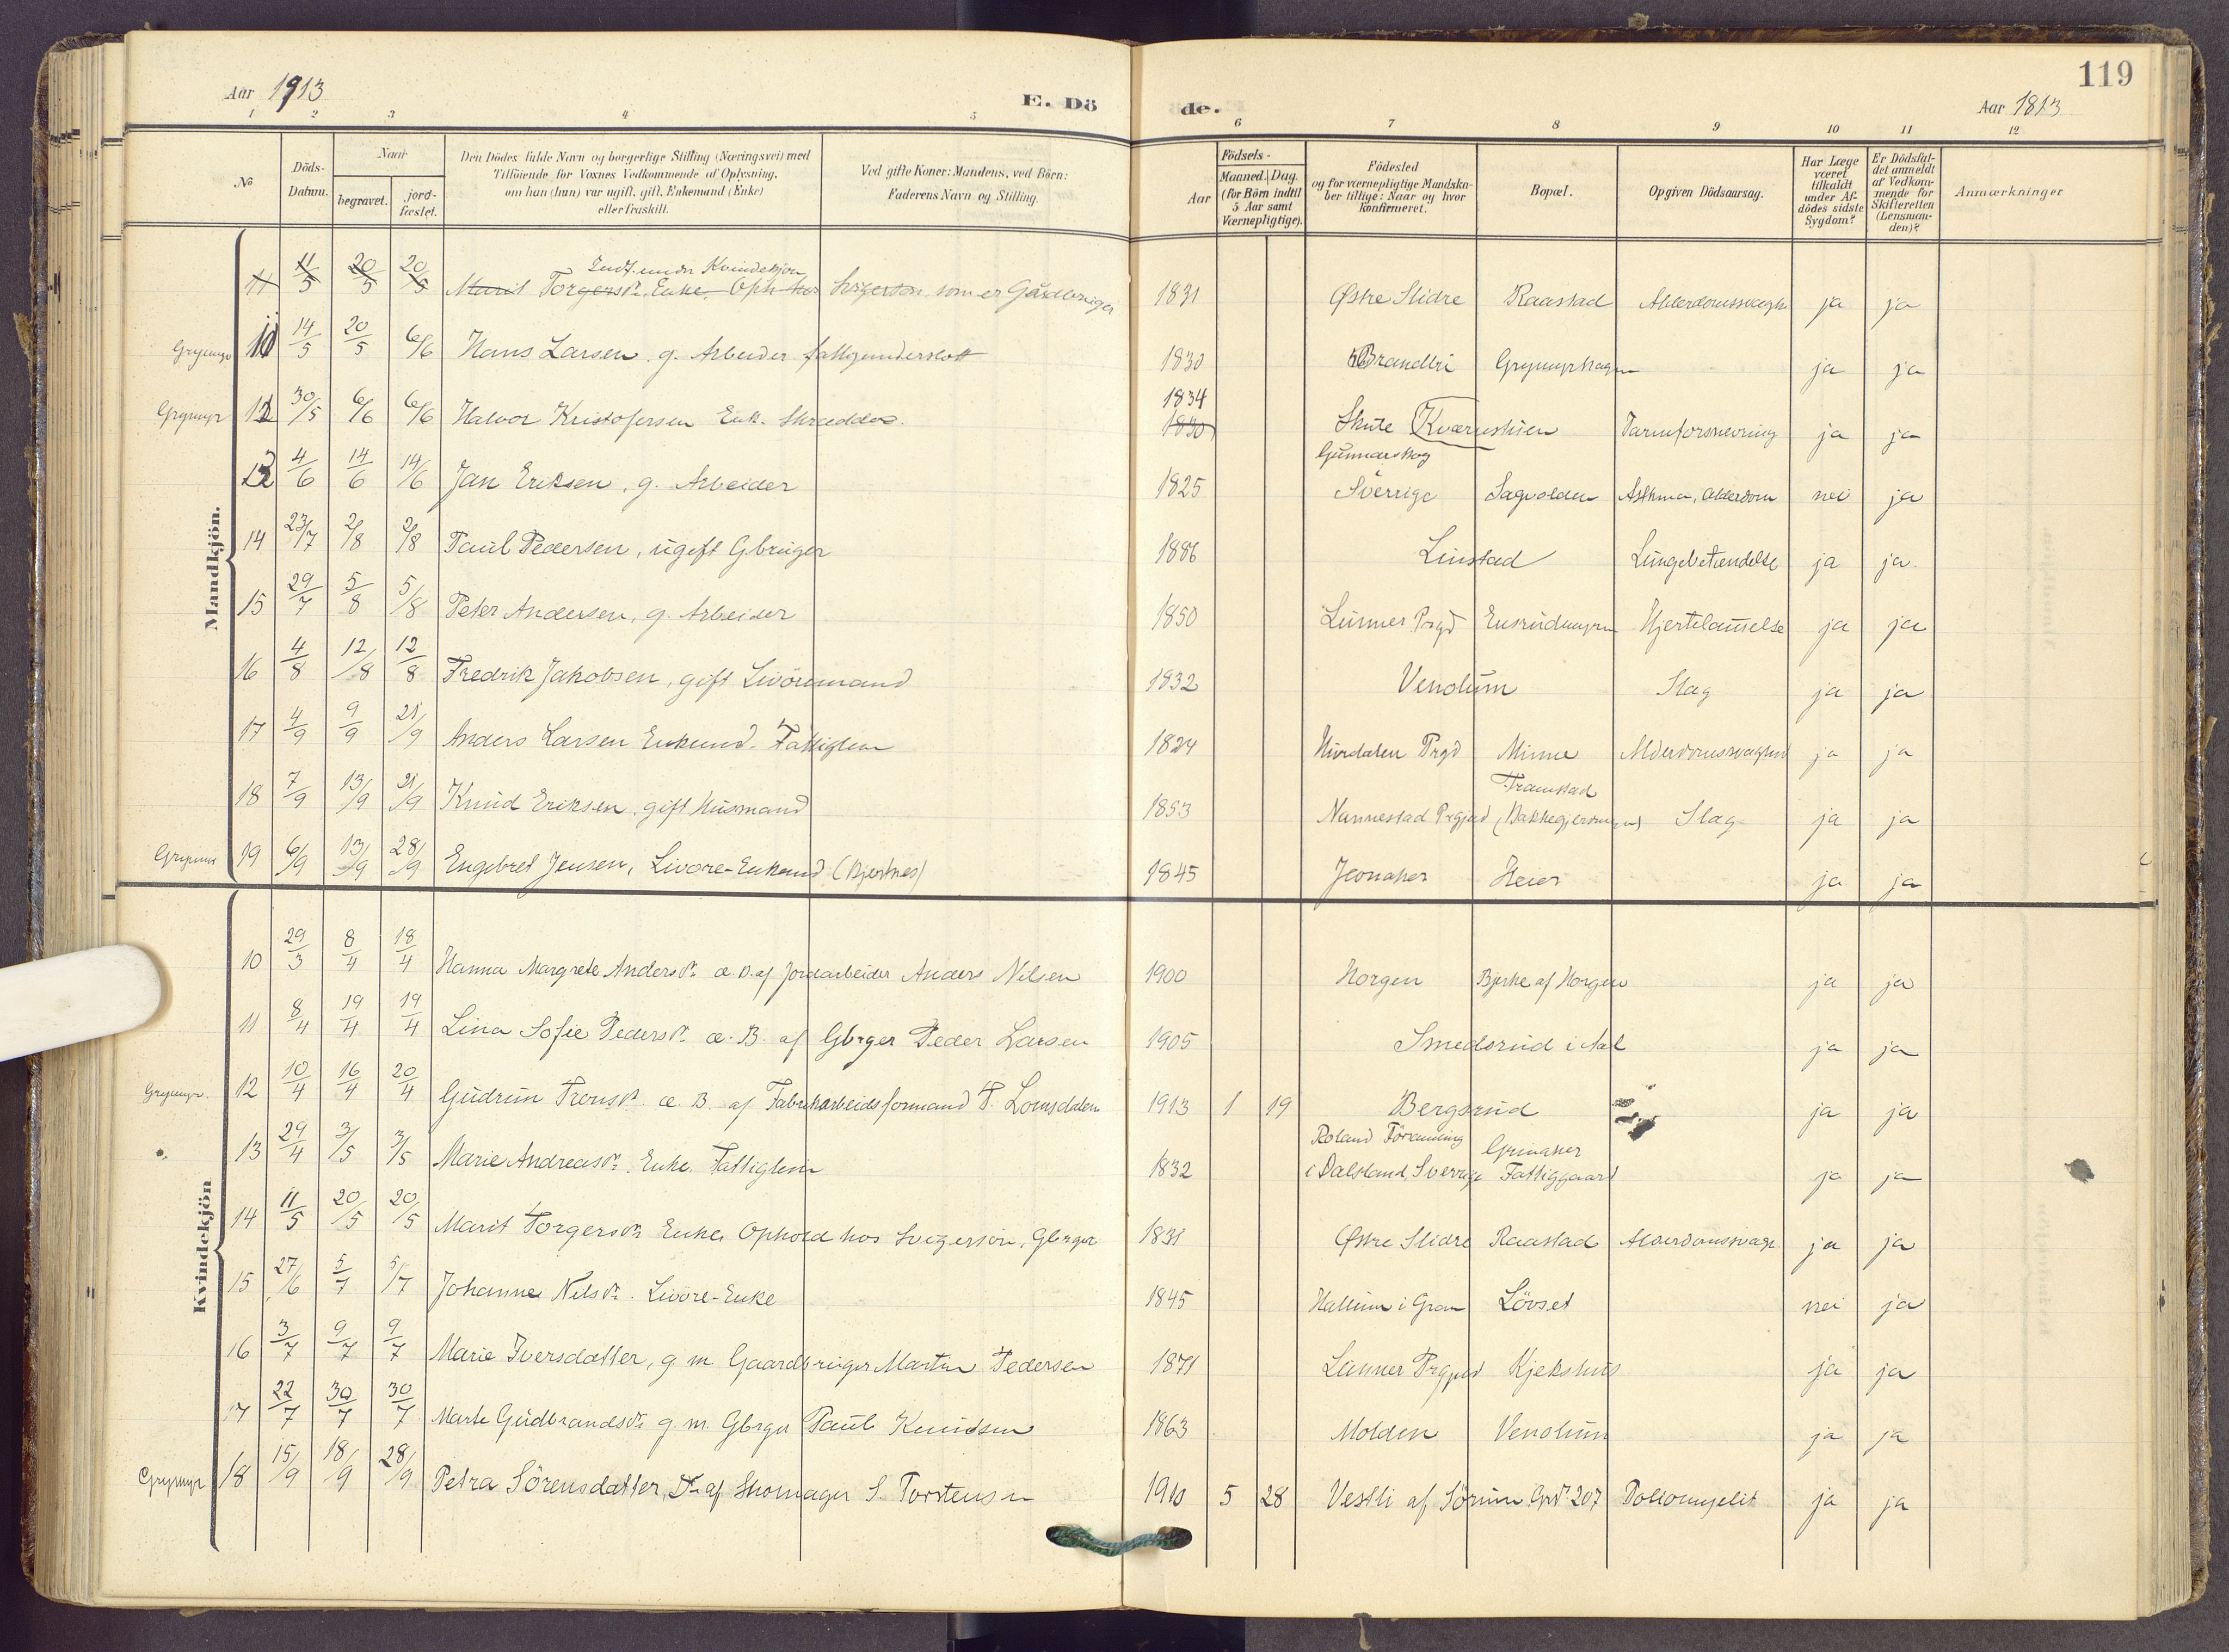 119
Aar 1913
E. Dö
de.
Aar 1813
1 2 3 4 5 6 7 8 9 10 11 12
No
Döds-Datum.
Naar
begravet.
jord-fæstet.
Den Dödes fulde Navn og borgerlige Stilling (Næringsvei) med
Tilföiende for Voxnes Vedkommende af Oplysning,
om han (hun) var ugift, gift, Enkemand (Enke)
eller fraskilt.
Ved gifte Koner: Mandens, ved Börn:
Faderens Navn og Stilling.
Aar
Födsels-
Maaned. Dag.
(for Börn indtil
5 Aar samt
Værnepligtige).
Födested
og for værnepligtige Mandska-
ber tillige: Naar og hvor
konfirmeret.
Bopæl.
Opgiven Dödsaarsag.
Har Læge
været
tilkaldt
under Af-
dödes sidste
Sygdom?
Er Dödsfal-
det anmeldt
af Vedkom-
mende for
Skifteretten
(Lensman-
den)?
Anmærkninger
Mandkjön.
Indf. under Kvindekjøn
11 11/5 20/5 20/5 Marit Torgersdr. Enke. Oph. hos Svigerson, som er Gårdbruger 1831 Østre Slidre Raastad Alderdomssvagh ja ja
Grymyr 11 14/5 20/5 6/6 Hans Larsen. g. Arbeider fattigunderstøtt 1830 Brandbu Grymyrhagen ja ja
1834
Grymyr 12 30/5 6/6 6/6 Halvor Kristofersen Enk. Skrædder. 1830 Skute Kværnstuen Tarmforsnevring ja ja
Gunnarskog
13 4/6 14/6 14/6 Jan Eriksen, g. Arbeider 1825 i Sverrige Sagvolden Asthma, Alderdom nei ja
14 23/7 2/8 2/8 Paul Pedersen, ugift Gbruger 1886 Linstad Lungebetændelse ja ja
15 29/7 5/8 5/8 Peter Andersen, g. Arbeider 1850 Lunner Prgd Ensrudmyren Hjertelammelse ja ja
16 4/8 12/8 12/8 Fredrik Jakobsen, gift Livöremand 1832 Venolum Slag ja ja
17 4/9 9/9 21/9 Anders Larsen Enkemd. Fattiglem 1824 Hurdalen Prgd Minne Alderdomssvaghed ja ja
Framstad
18 7/9 13/9 21/9 Knud Eriksen, gift Husmand 1853 Nannestad Prgjed (Bakkegjerdingen) Slag ja ja
Grymyr 19 6/9 13/9 28/9 Engebret Jensen, Livöre-Enkemd (Bjertnes) 1845 Jevnaker Heier ja ja
Kvindekjön
10 29/3 8/4 18/4 Hanna Margrete Andersdr. æ. D. af Jordarbeider Anders Nilsen 1900 Horgen Bjerke af Horgen ja ja
11 8/4 19/4 19/4 Lina Sofie Pedersdr. æ. B. af Gbrger Peder Larsen 1905 Smedsrud i Aal ja ja
Grymyr. 12 10/4 16/4 20/4 Gudrun Tronsdr. æ. B. af Fabrikarbeidsformand T. Lomsdalen 1913 1 19 Bergsrud ja ja
Roland Församling Grinaker
13 29/4 3/5 3/5 Marie Andreasdr. Enke. Fattiglem 1832 i Dalsland, Sverrige Fattiggaard ja ja
14 11/5 20/5 20/5 Marit Torgersdr. Enke, Ophold hos Svigersön, Gbrger 1831 Østre Slidre Raastad Alderdomssvagh. ja ja
15 27/6 5/7 5/7 Johanne Nilsdr. Livöre-Enke 1845 Hallum i Gran Lövset nei ja
16 3/7 9/7 9/7 Marie Iversdatter, g. m. Gaardbruger Martin Pedersen 1871 Lunner Prgjed Kjekshus ja ja
17 22/7 30/7 30/7 Marte Gudbrandsdr. g. m. Gbrger Paul Knudsen 1863 Molden Venolum ja ja
Grymyr 18 15/9 18/9 28/9 Petra Sörensdatter, Dr. af Skomager S. Torstensen 1910 5 28 Vestli af Sörum Gr. Nr. 207 Poliomyelit ja ja